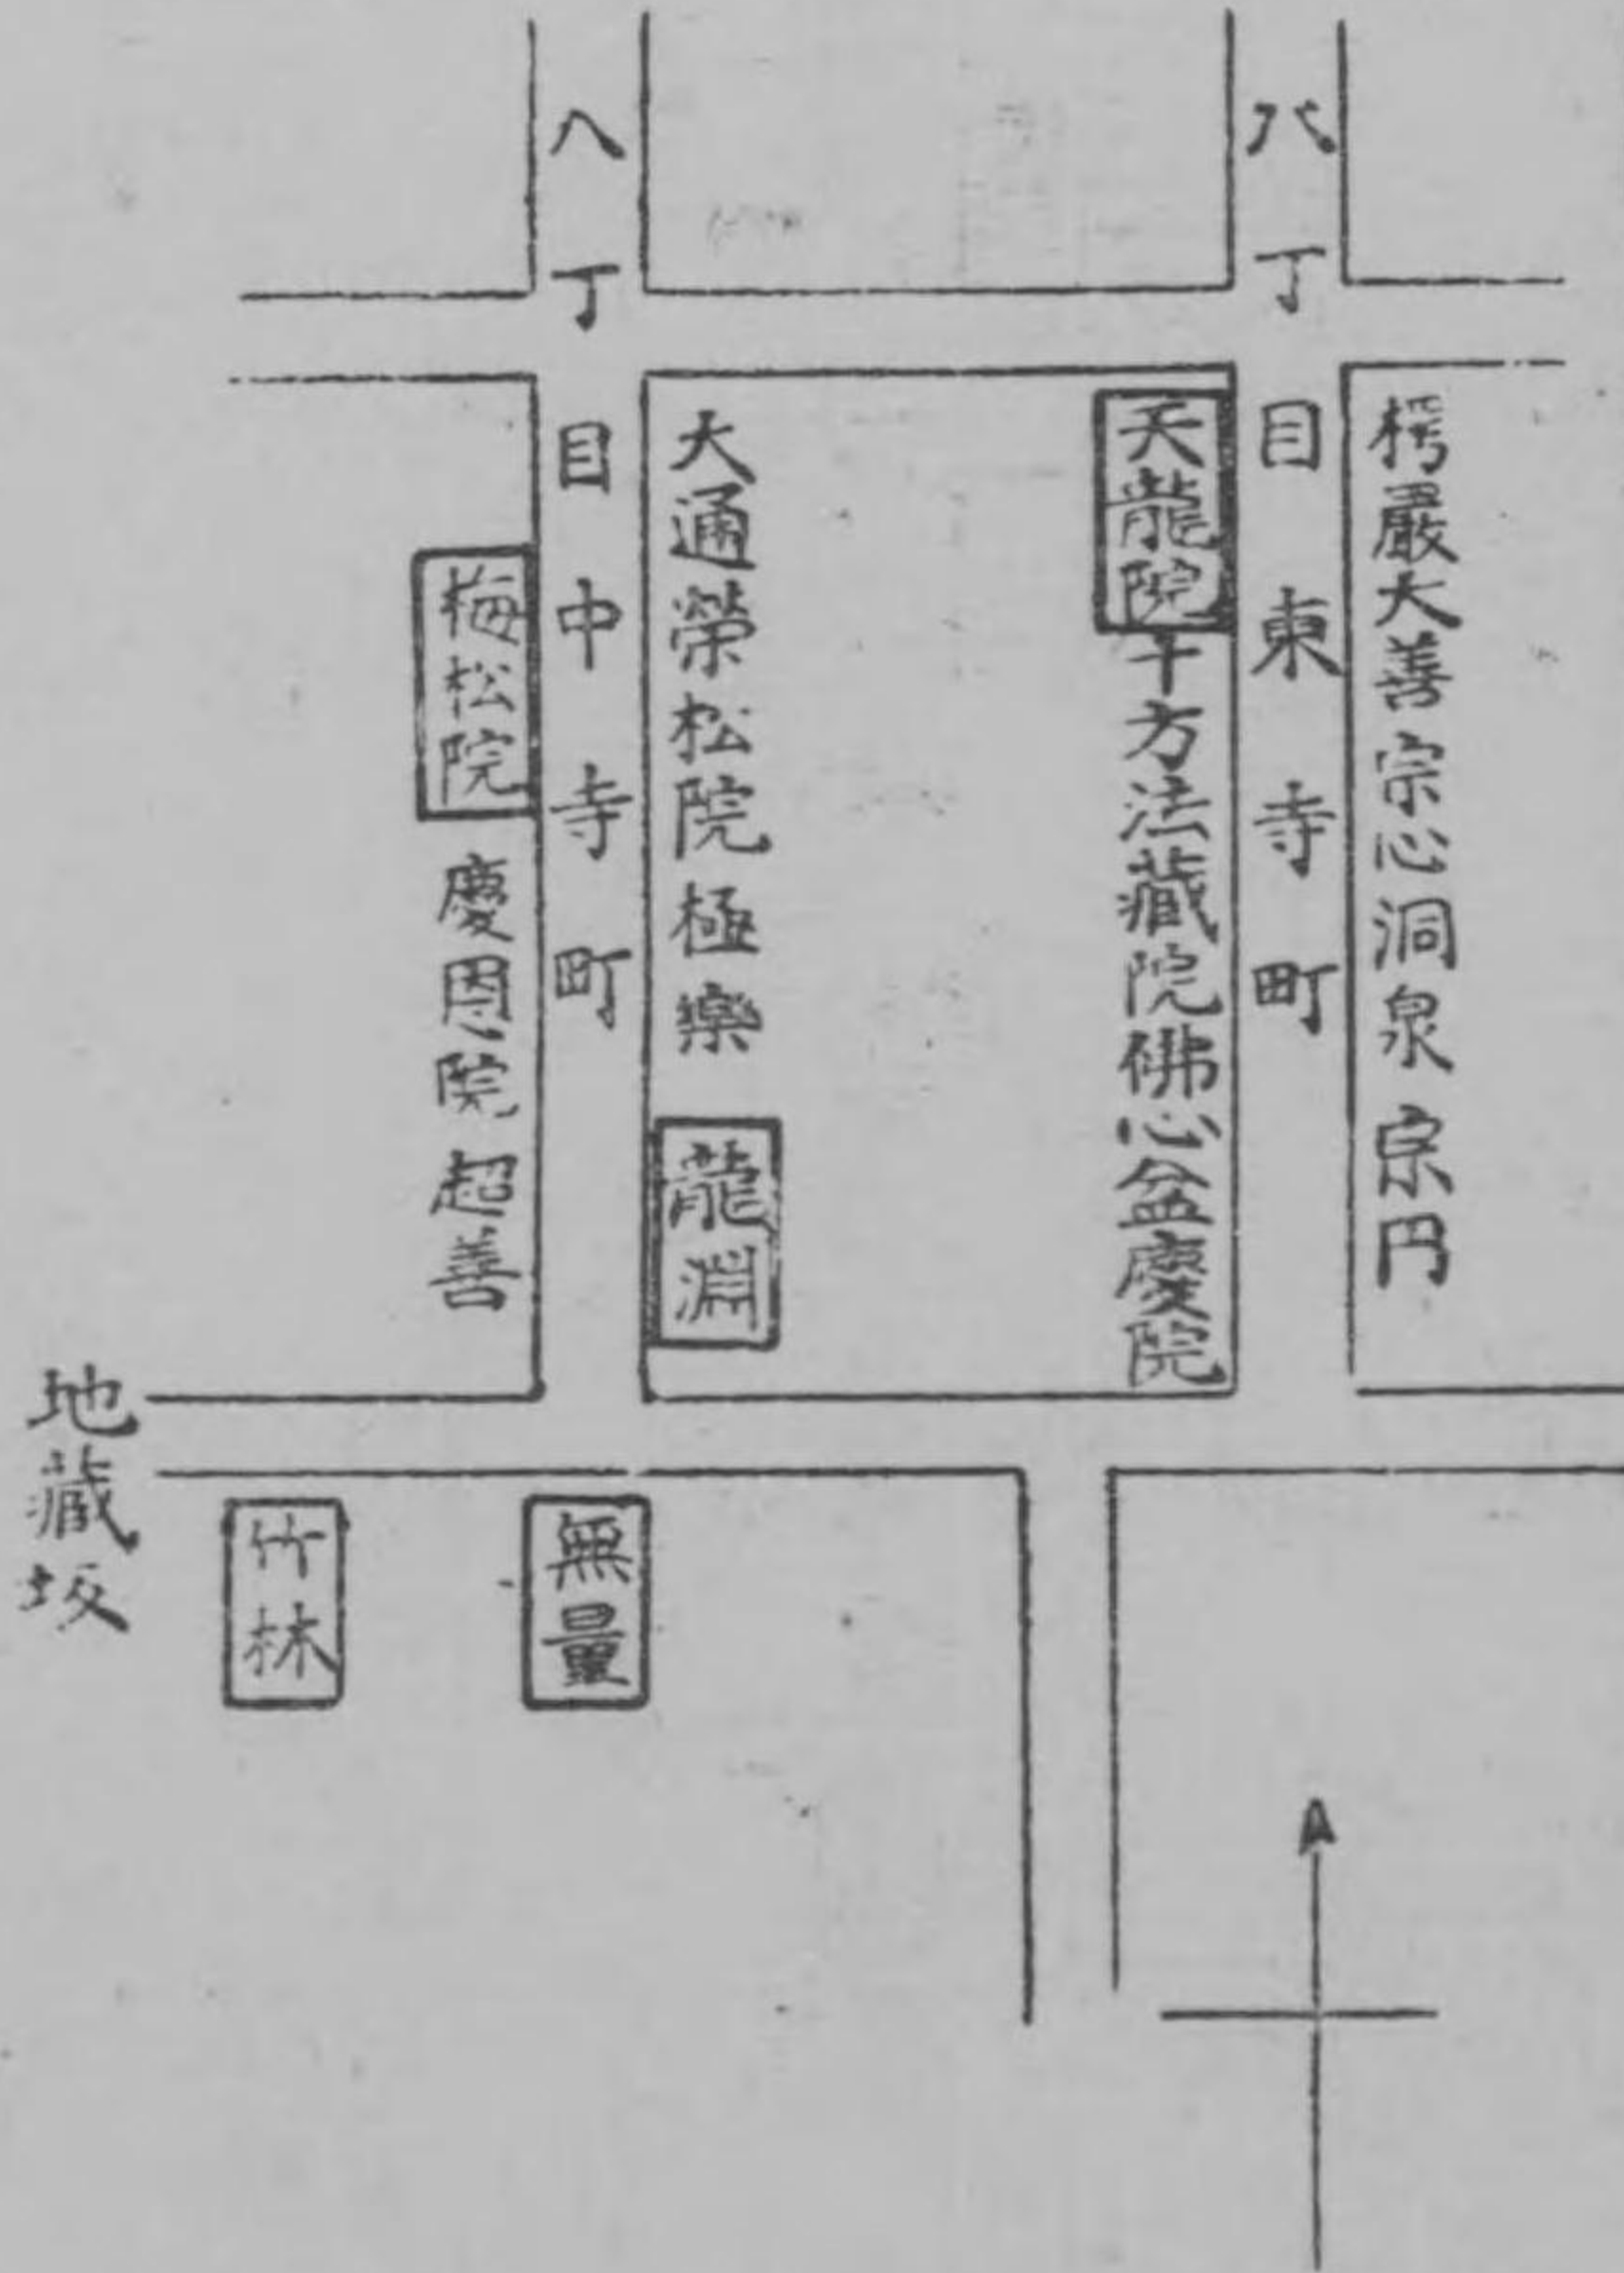 楞嚴大善宗心洞泉宗円
八丁目東寺町
天龍院十方法藏院佛心盆慶院
大通榮松院極樂
龍淵
八丁目中寺町
梅松院
慶恩院超善
無量
竹林
地藏坂